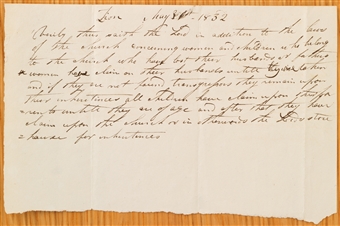 Zion May 1832
Verily thus saith the Lord in addition to the laws
of the church concerning women and children who belong
to the church who have lost their husbands or fathers
women have claim on their husbands untill they are taken
and if they are not found transgressors they remain upon
their inheritinces all children have claim upon their pa
rents untill they are of age and after that they have
claim upon the church or in otherwords the Lords store
house for inheritinces